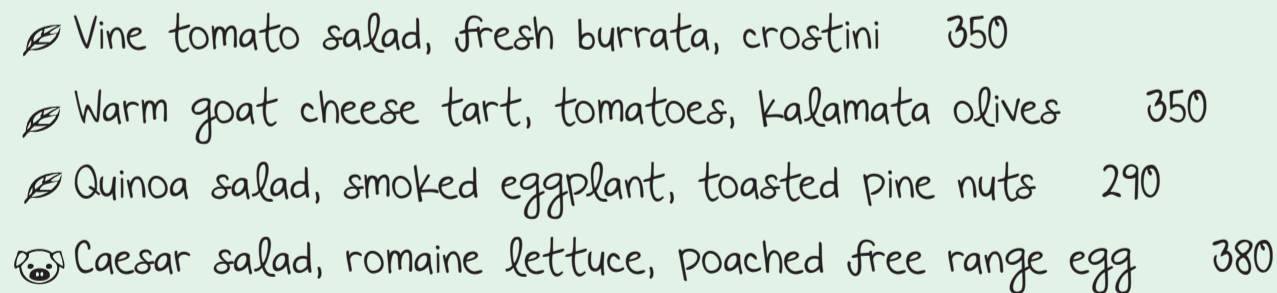 Vine tomato salad, fresh burrata, crostini 350
Warm goat cheese tart, tomatoes, kalamata olives 350
Quinoa salad, smoked eggplant, toasted pine nuts 290
Caesar salad, romaine lettuce, poached free range egg 380